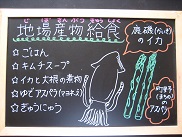 じばさんぶつきゅうしょく
地場産物給食
☆ごはん
☆キムチスープ
☆イカと大根の煮物
☆ゆでアスパラ(マヨネーズ)
☆ぎゅうにゅう
鹿磯(かいそ)
のイカ
の
アスパラ